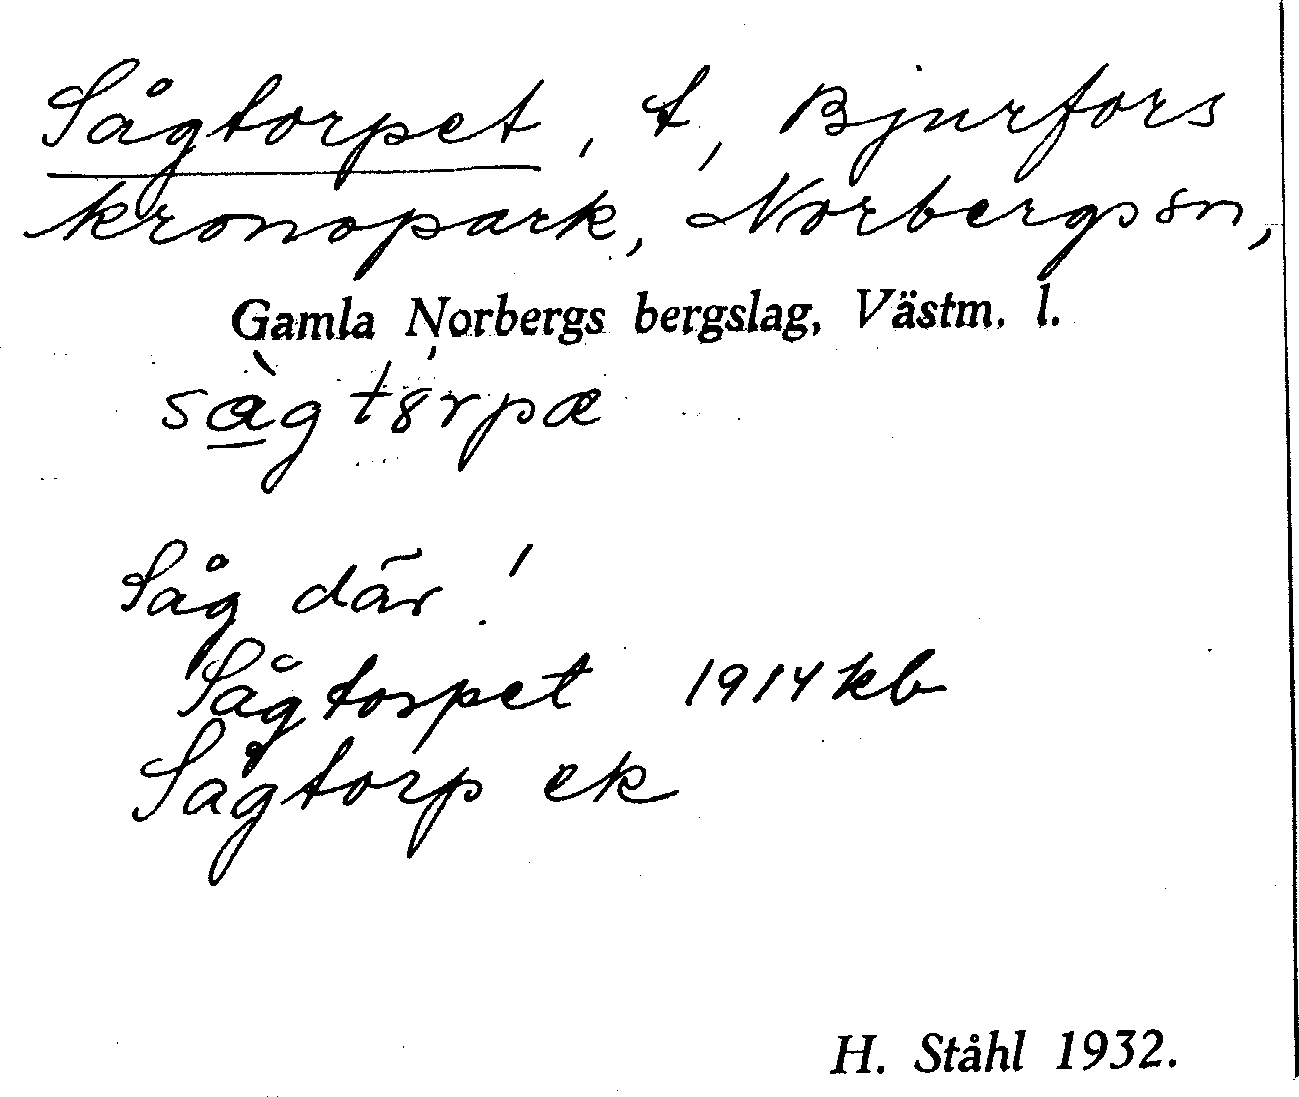 Sågtorpet, t, Bjurfors
kronopark, Norbergs sn,
Gamla Norbergs bergslag, Västm. l.
sà̲gtȯrpæ
Såg där!
Sågtorpet 1914 kb
Sågtorp ek
H. Ståhl 1932.